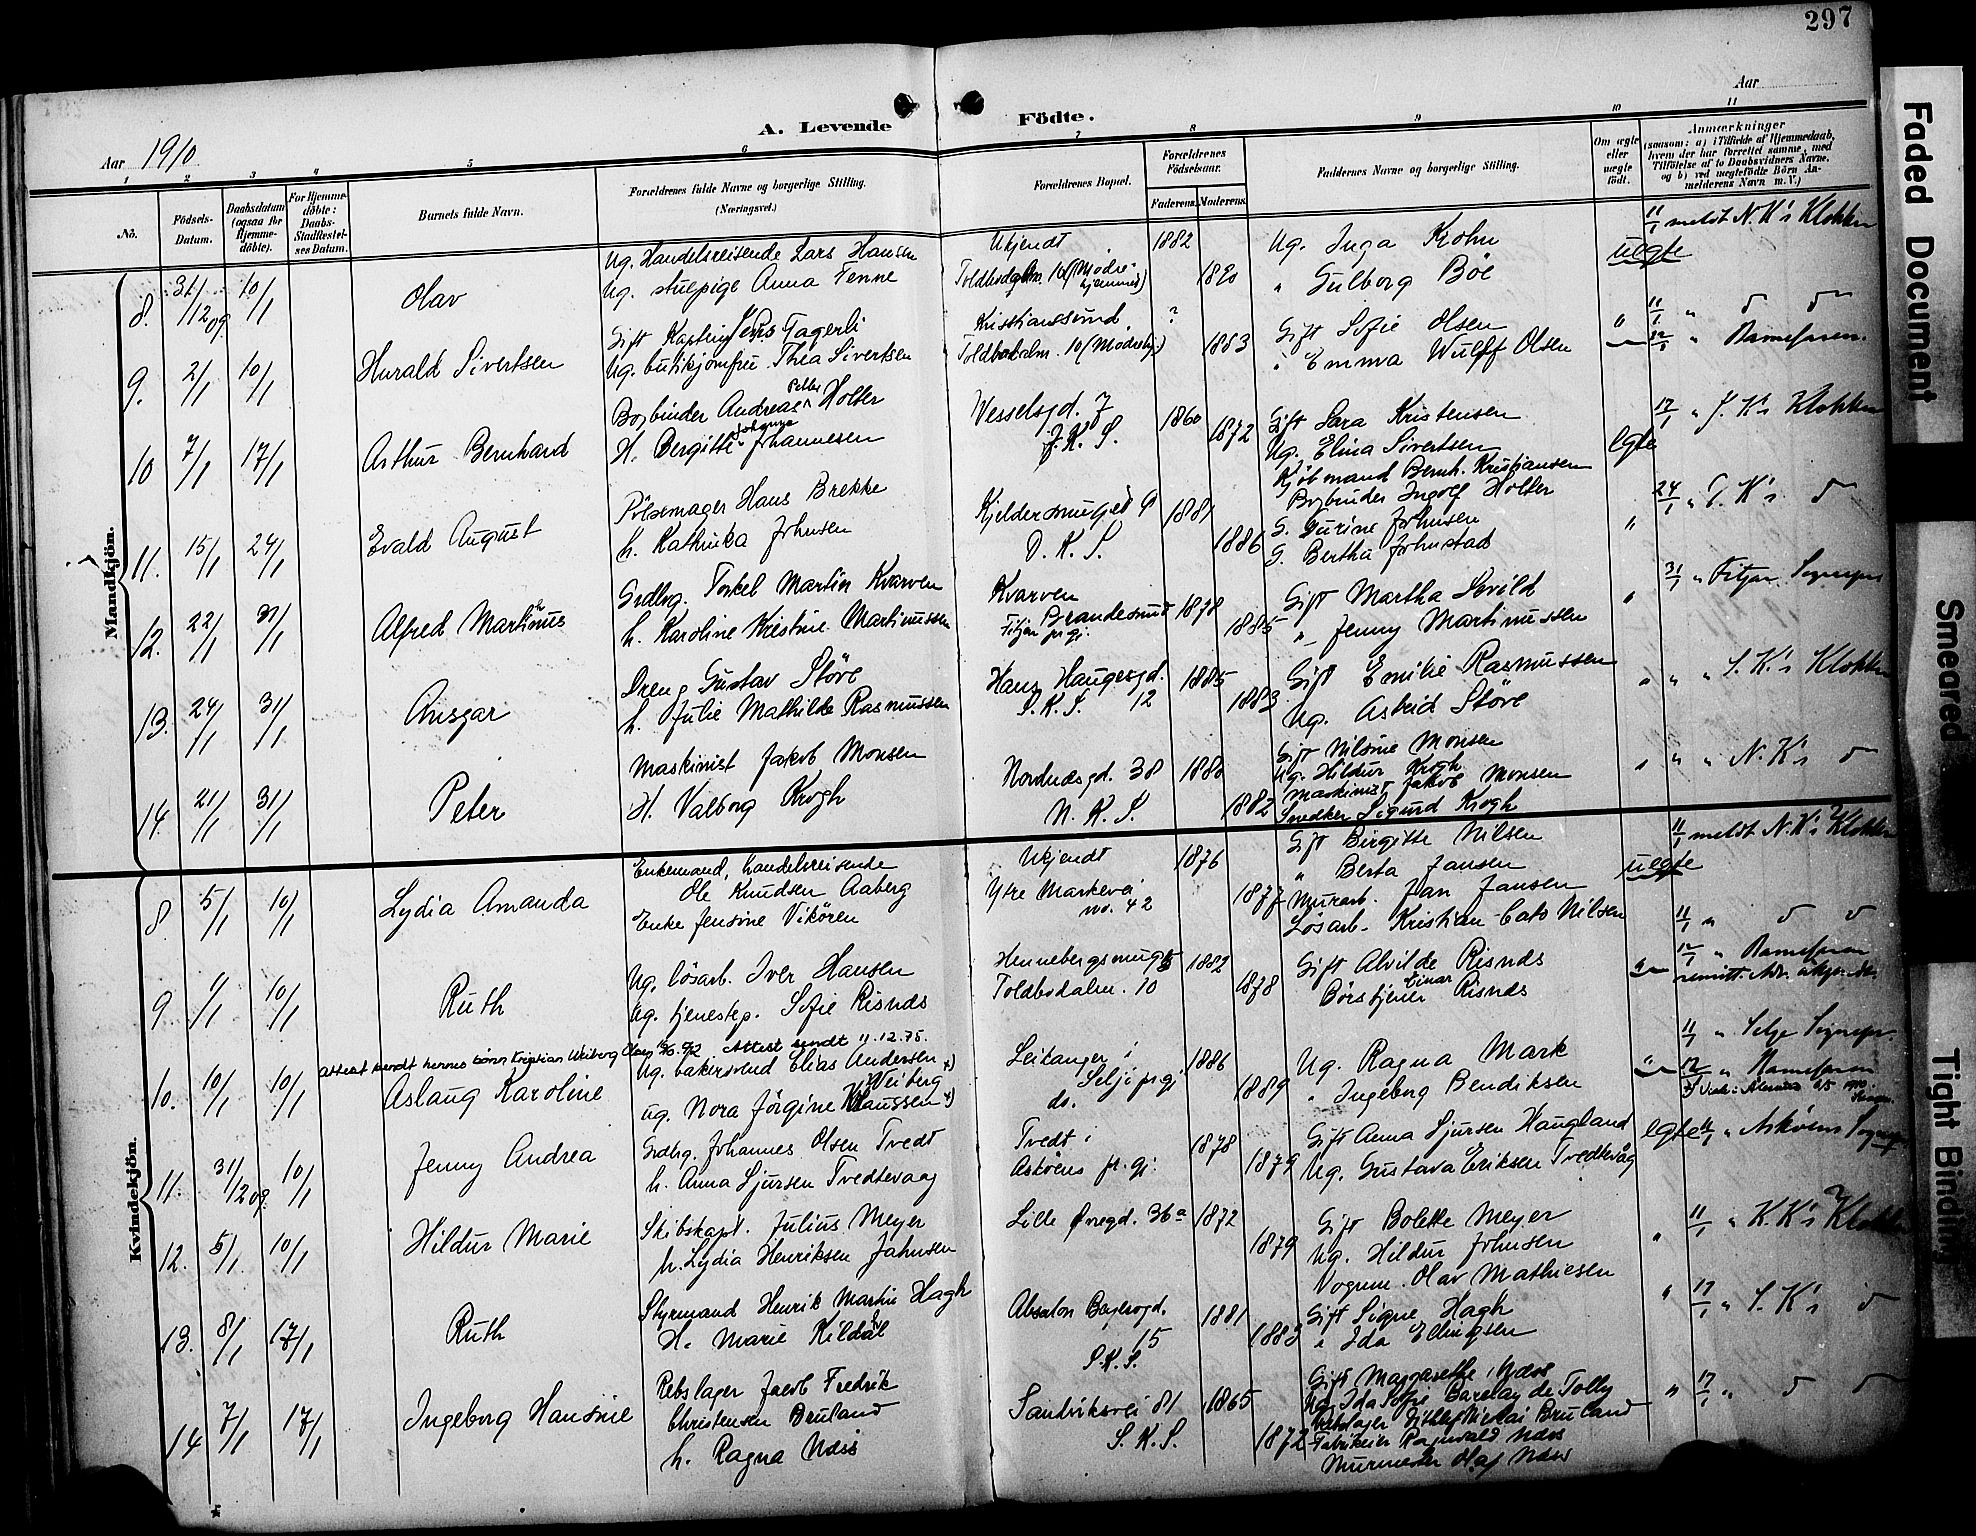 297
Aar
A. Levende Födte.
Aar 1910.
1 2 3 4 5 6 7 8 9 10 11
No.
Födsels-Datum.
Daabsdatum (ogsaa for Hjemmedöbte).
For Hjemmedöbte: Daabs-Stadfæstelses Datum.
Barnets fulde Navn.
Forældrenes fulde Navne og borgerlige Stilling. (Næringsvei.)
Forældrenes Bopæl.
Forældrenes Födselsaar.
Faderens. Moderens.
Faddernes Navne og borgerlige Stilling.
Om ægte eller uægte födt.
Anmærkninger (saasom: a) i Tilfælde af Hjemmedaab, hvem der har forrettet samme, med Tilföielse af to Daabsvidners Navne, og b) ved uægtefödte Börn Anmelderens Navn m. V.)
Mandkjön.
8. 31/12 09 10/1 Olav
Ug. Handelsreisende Lars Hansen
Ug. stuepige Anna Tenne
Ukjendt 1882
1890
Ug. Inga Krohn
" Gulborg Böe
uegte
11/1 meldt N. K's Klokker
9. 2/1 10/1 Harald Sivertsen
Ug. butikjomfru Thea Sivertsen
Kristianssund ?
1883
Gift Sofie Olsen
" Emma Wulff Olsen
10 7/1 17/1 Arthur Bernhard
Bogbinder Andreas Peder Holter
H. Bergitte Johanna Johannesen
Vesselsgd. 7 1860
J. K. S. 1872
Gift Sara Kristensen
Ug. Elina Sivertsen
Kjöbmand Bernh. Kristiansen
Bogbinder Ingolf Holter
egte
17/1 " J. K's Klokker
11. 15/1 24/1 Evald August
Pölsemager Hans Brekke
h. Kathinka Johnsen
Kjeldersmuget 9 1881
D. K. S. 1886
G. Gurine Johnsen
G. Bertha Johnstad
24/1
12. 22/1 31/1 Alfred Martinus
Grdbrg. Torkel Martin Kvarven
h. Karoline Kristine Martinussen
Kvarven 1878
Fitjar pr.gj. 1885
Gift Martha
" Jenny Martinussen
31/1 " Fitjar Sognepr.
13. 24/1 31/1 Ansgar
Dreng Gustav Störe
h. Julie Mathilde Rasmussen
Hans Haugesgd. 1885
S. K. S. 12 1883
Gift Emilie Rasmussen
Ug. Astrid Störe
" " " S. K's Klokker
14. 21/1 31/1 Peter
Maskinist Jakob Monsen
H. Valborg Krogh
Nordnæsgd. 38 1880
N. K. S. 1882
Gift Nilsine Monsen
Ug. Hildur Krogh
Maskinist Jakob Monsen
Snedker Sigurd Krogh
" " " N. K's
Kvindekjön.
8. 5/1 10/1 Lydia Amanda
Enkemand, handelsreisende
Ole Knudsen Aaberg
Enke Jensine Vikören
Ukjendt 1876
Ytre Markevei
no. 42 1877
Gift Birgitte Nilsen
" Berta Jansen
Murarb. Jan Jansen
Lösarb. Kristian Cato Nilsen
uegte
11/1 meldt N. K's Klokker
9 1/1 10/1 Ruth
Ug. lösarb. Iver Hansen
Ug. tjenestep. Sofie Risnes
Hennebergsmug 5 1882
Toldbodalm. 10 1878
Gift Alvilde Risnes
Börstjener Einar Risnes
attest sendt hennes sønn Kristian Weiberg Olsen Attest sendt 11.12.75.
10. 10/1 10/1 Aslaug Karoline
Ug. bakersvend Elias Andersen
ug. Nora Jörgine Klaussen Weiberg
Leikanger i 1886
Selje pr.gj.
do. 1889
Ug. Ragna Mark
" Ingeborg Bendiksen
11/1 " Selje Sognepr.
11. 31/12 09 10/1 Jenny Andrea
Grdbrg. Johannes Olsen Tvedt
h. Anna Sjursen Tvedtevaag
Tvedt i 1878
Asköens pr.gj. 1879
Gift Anna Sjursen Haugland
Ug. Gustava Eriksen Tvedtevåg
egte 11/1 " Asköens Sognepr.
12. 5/1 10/1 Hildur Marie
Skibskapt. Julius Meyer
h. Lydia Henriksen Jahnsen
Lille Övregd. 36a 1872
1879
Gift Bolette Meyer
Ug. Hildur Johnsen
Vognm. Olav Mathiesen
" 11/1 " K. K's Klokker
13. 8/1 17/1 Ruth
Styrmand Henrik Martin Hagh
H. Marie Kildal
Absalon Beyersgd. 1881
15
S. K. S. 1883
Gift Signe Hagh
" Ida Ellingsen
" 17/1 " S. K's
14 7/1 17/1 Ingeborg Hansine
Rebslager Jacob Fredrik
Christensen Bruland
h. Ragna Næss
Sandviksvei 81 1865
S. K. S. 1872
Gift Margarethe Næss
Ug. Ida Sofie Barclay de Tolly
Rebslager Ditlef Nicolai Bruland
Fabrikeier Ragnvald Næss
Murmester Olaf Næss
" 17/1 "
Faded Document
Smeared
Tight Binding